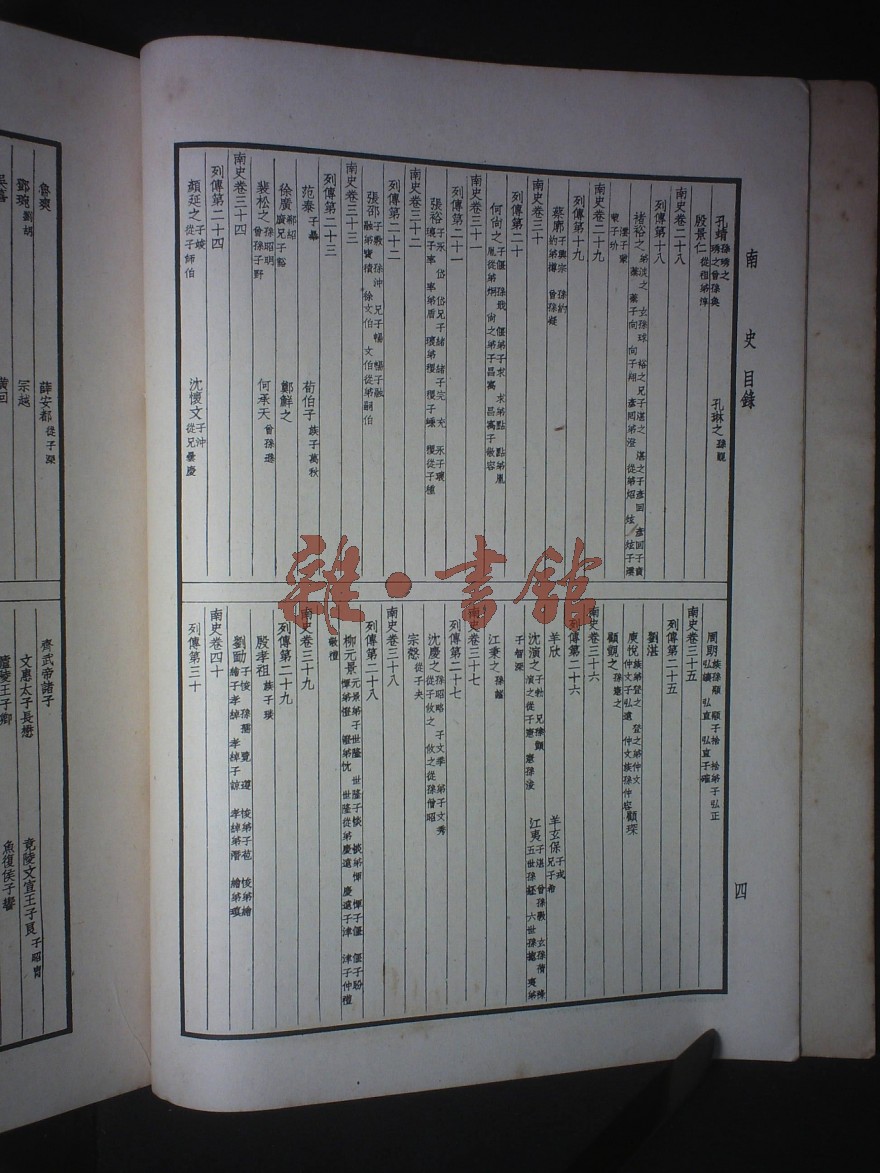 南史 目錄
四
孔靖 孫琇之 琇之曾孫奐 孔琳之 孫覬
殷景仁 從祖弟淳
南史卷二十八
列傳第十八
褚裕之
南史卷二十九
列傳第十九
蔡廓 子興宗 孫約 約弟撙 曾孫凝
南史卷三十
列傳第二十
何尚之 子偃 孫戢 偃弟子求 求弟點 點弟胤 胤從弟炯 尚之弟子昌㝢 昌㝢子敬容
南史卷三十一
列傳第二十一
張裕 子永 岱 岱兄子緒 緒子完 充 永子瓌 瓌子率 率弟盾 瓌弟稷 稷子嵊 稷從子種
南史卷三十二
列傳第二十二
張邵 子敷 孫沖 兄子暢 暢子融 融弟寶積 徐文伯 文伯從弟嗣伯
南史卷三十三
列傳第二十三
范泰 子曄 荀伯子 族子萬秋
徐廣 郗紹 廣兄子豁 鄭鮮之
裴松之 孫昭明 曾孫子野 何承天 曾孫遜
南史卷三十四
列傳第二十四
顏延之 子竣 從子師伯 沈懷文 子沖 從兄曇慶
周朗 族孫顒 顒子捨 捨弟子弘正 弘讓 弘直 弘直子確
南史卷三十五
列傳第二十五
劉湛
庾悅 族弟登之 登之弟仲文 仲文子弘遠 仲文族孫仲容 顧琛
顧覬之 孫憲之
南史卷三十六
列傳第二十六
羊欣 羊玄保 子戎 兄子希
沈演之 子勃 兄孫顗 演之從子憲 憲孫浚 江夷 子湛 曾孫斅 玄孫蒨 曇 五世孫紑 六世孫摠 夷弟子智深
江秉之 孫謐
南史卷三十七
列傳第二十七
沈慶之 孫昭略 子文季 弟子文秀 從子攸之 攸之從孫僧昭
宗慤 從子夬
南史卷三十八
列傳第二十八
柳元景 元景弟子世隆 世隆子惔 惔弟惲 惲子偃 偃子盼 惲弟憕 憕弟忱 世隆從弟慶遠 慶遠子津 津子仲禮 敬禮
南史卷三十九
列傳第二十九
殷孝祖 族子琰
劉勔 子悛 孫孺 覽 遵 悛弟子苞 悛弟繪 繪子孝綽 孝綽子諒 孝綽弟潛 繪弟瑱
南史卷四十
列傳第三十
魯爽 薛安都 從子深
鄧琬 劉胡 宗越
吳喜 黃回
齊武帝諸子
文惠太子長懋 竟陵文宣王子良 子昭胄
廬陵王子卿 魚復侯子響
雜·書館